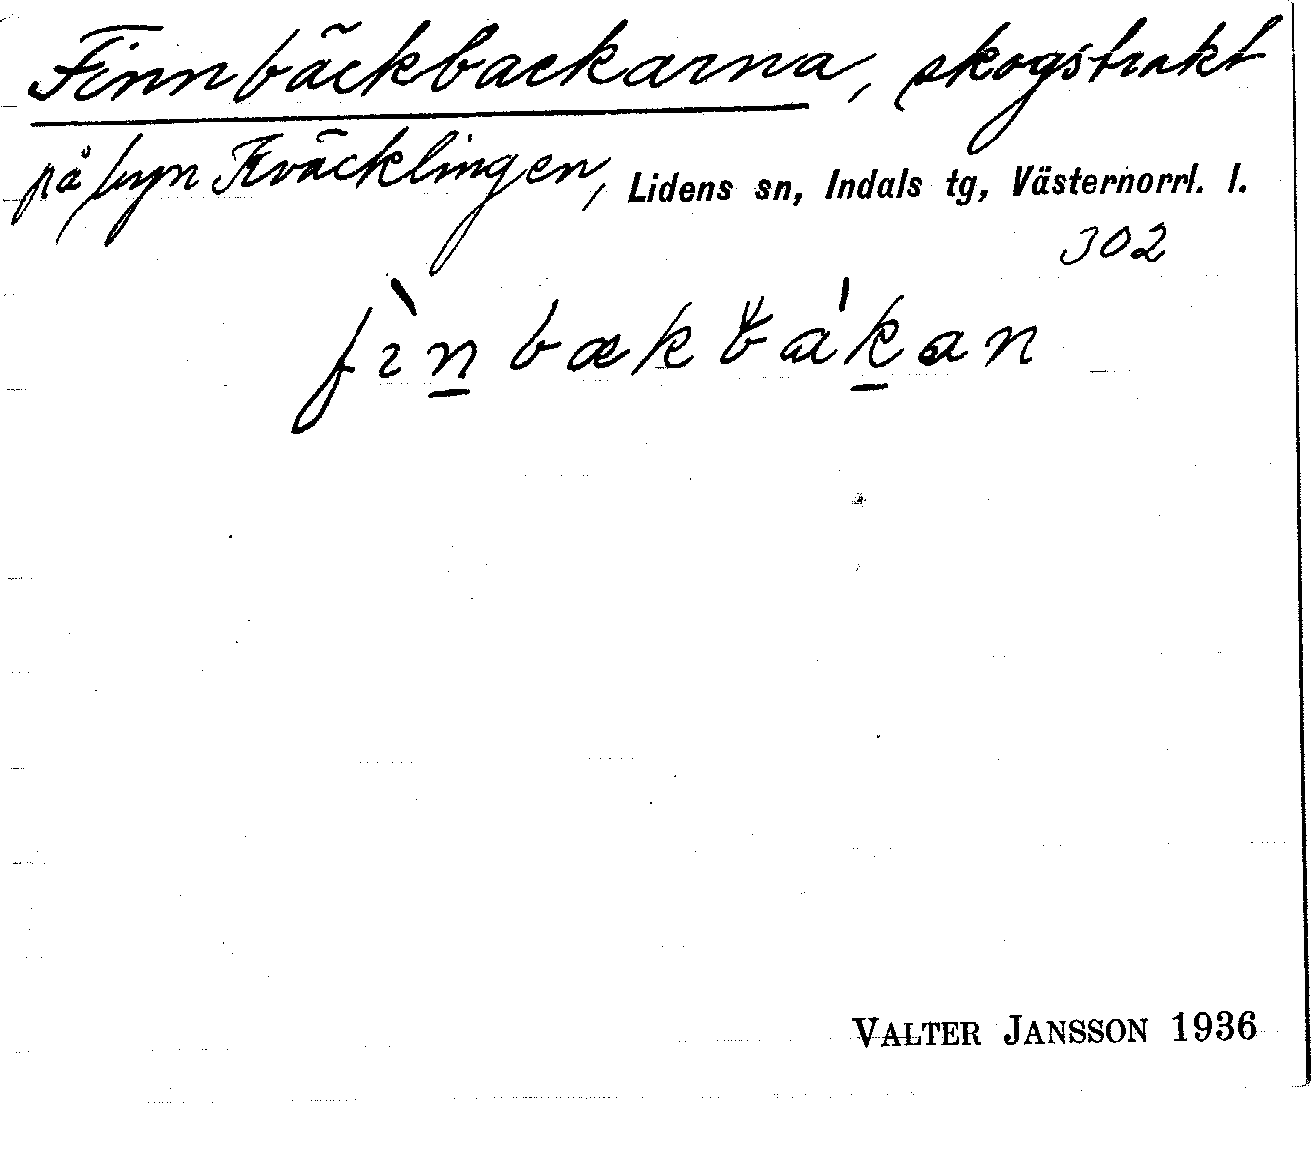 Finnbäckbackarna, skogstrakt
på byn Kväcklingen, Lidens sn, Indals tg, Västernorrl. l.
302
fìn̲bækbák̲an
VALTER JANSSON 1936